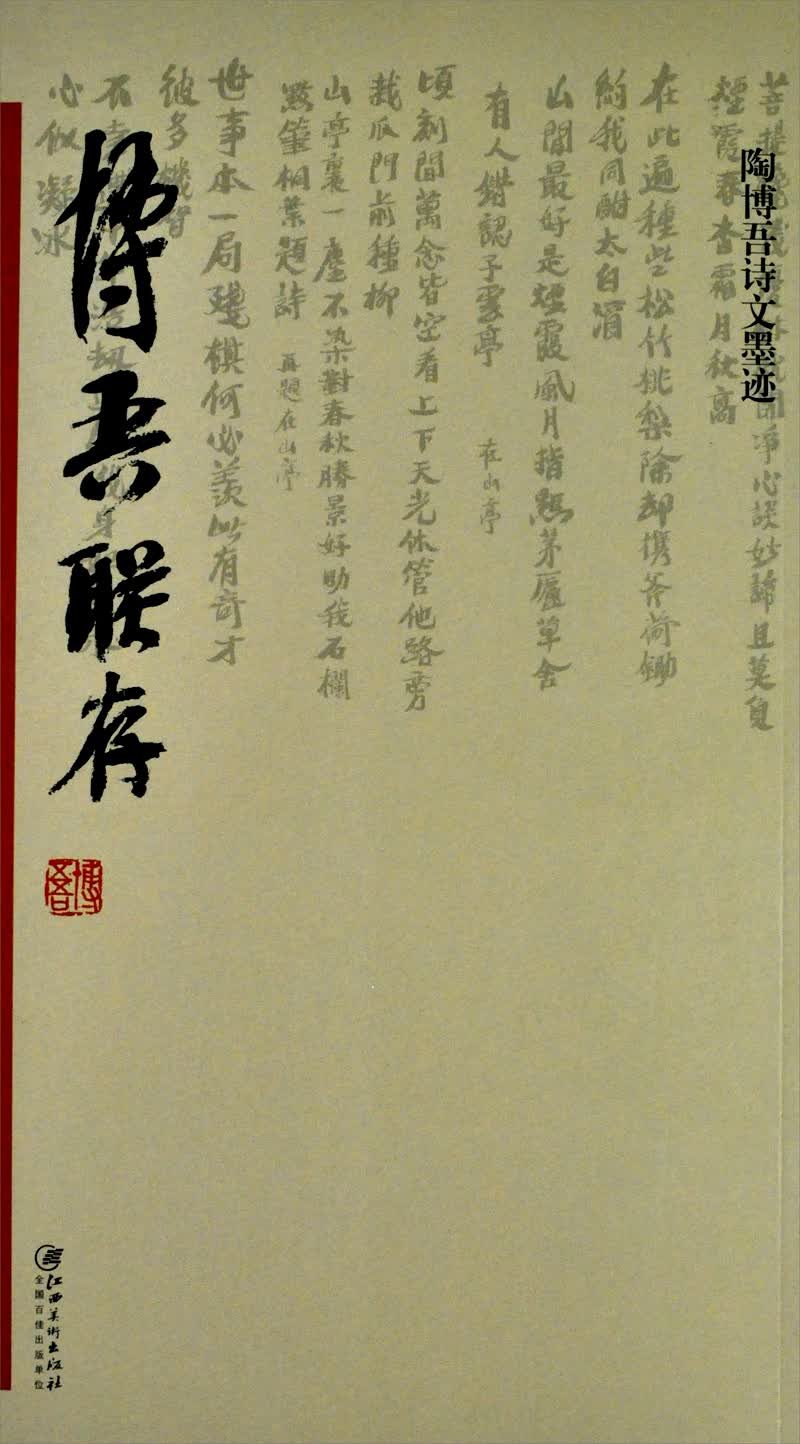 陶博吾诗文墨迹
博吾联存
博吾
菩提
净心谈妙谛且莫负
烟霞春杏霜月秋高
在此遍種些松竹桃梨除却携斧荷鋤
約我同酣太白酒
山間最好是烟霞風月指點茅廬草舍
有人錯認子雲亭
在山亭
頃刻間萬念皆空看上下天光休管他路旁
栽瓜門前種柳
山亭裏一塵不染對春秋勝景好助我石欄
點筆桐葉題詩
再題在山亭
世事本一局殘棋何必羨以有奇才
彼多機智
心似凝冰
江西美術出版社
全国百佳出版单位